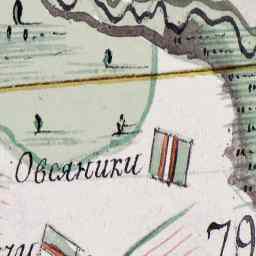 Овсяники
79